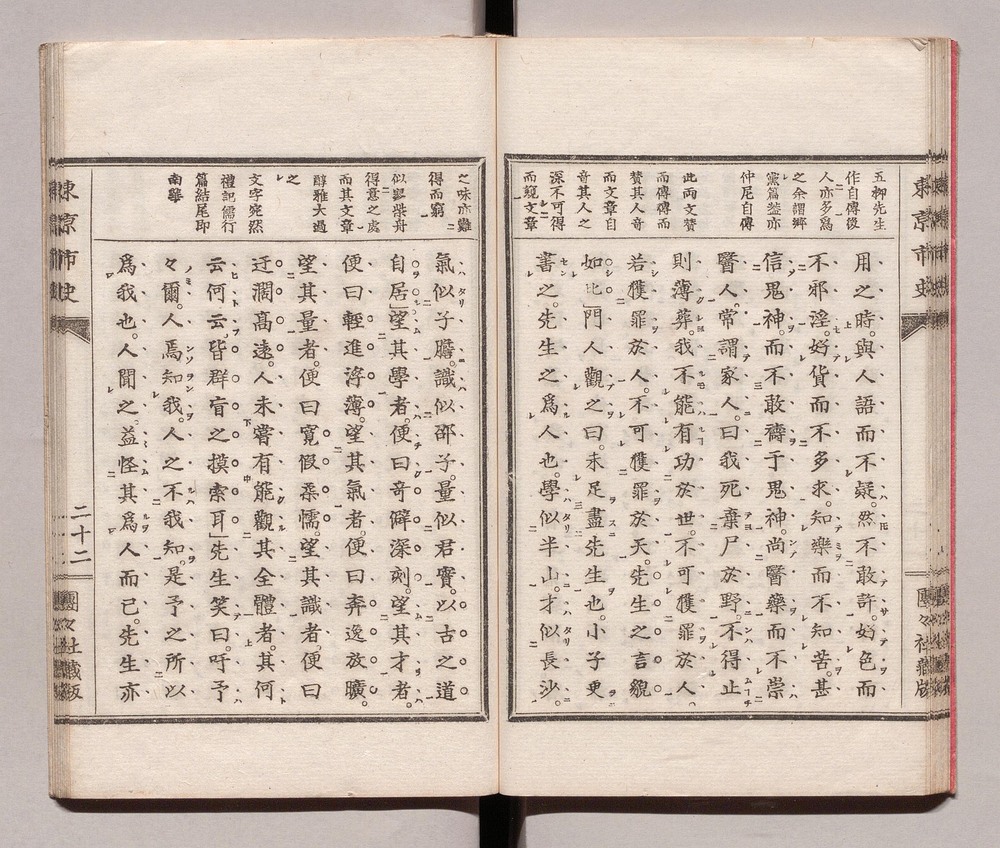 五柳先生
作自傳後
人亦多爲
之余謂鄉
黨篇蓋亦
仲尼自傳
此両文贊
而傳傳而
贊其人奇
而文章自
奇其人之
深不可得
而窺文章
用之時。與人語而不疑。然不敢許。好色而
不邪淫。好貨而不多求。知樂而不知苦。甚
信鬼神。而不敢禱于鬼神。尚醫藥而不崇
醫人。常謂家人。曰我死棄尸於野。不得止
則薄葬。我不能有功於世。不可獲罪於人。
若獲罪於人。不可獲罪於天。先生之言貌
如此」門人觀之曰。未足盡先生也。小子更
書之。先生之爲人也。學似半山。才似長沙。
之味亦難
得而窮
似謬柴舟
得意之處
而其文章
醇雅大過
之
文字宛然
禮記儒行
篇結尾即
南雞
氣似子膽。識似邵子。量似君實。以古之道
自居」望其學者。便曰奇僻深刻。望其才者。
便曰輕進浮薄。望其氣者。便曰奔逸放曠。
望其量者。便曰寬假柔懦。望其識者。便曰
迂濶高遠。人未嘗有能觀其全體者。其何
云何云皆群盲之摸索耳」先生笑曰。吁予
々爾。人焉知我。人之不我知。是予之所以
爲我也。人聞之。益怪其爲人而已。先生亦
東京市史
二十二
團々社藏版
東京市史
團々社藏版